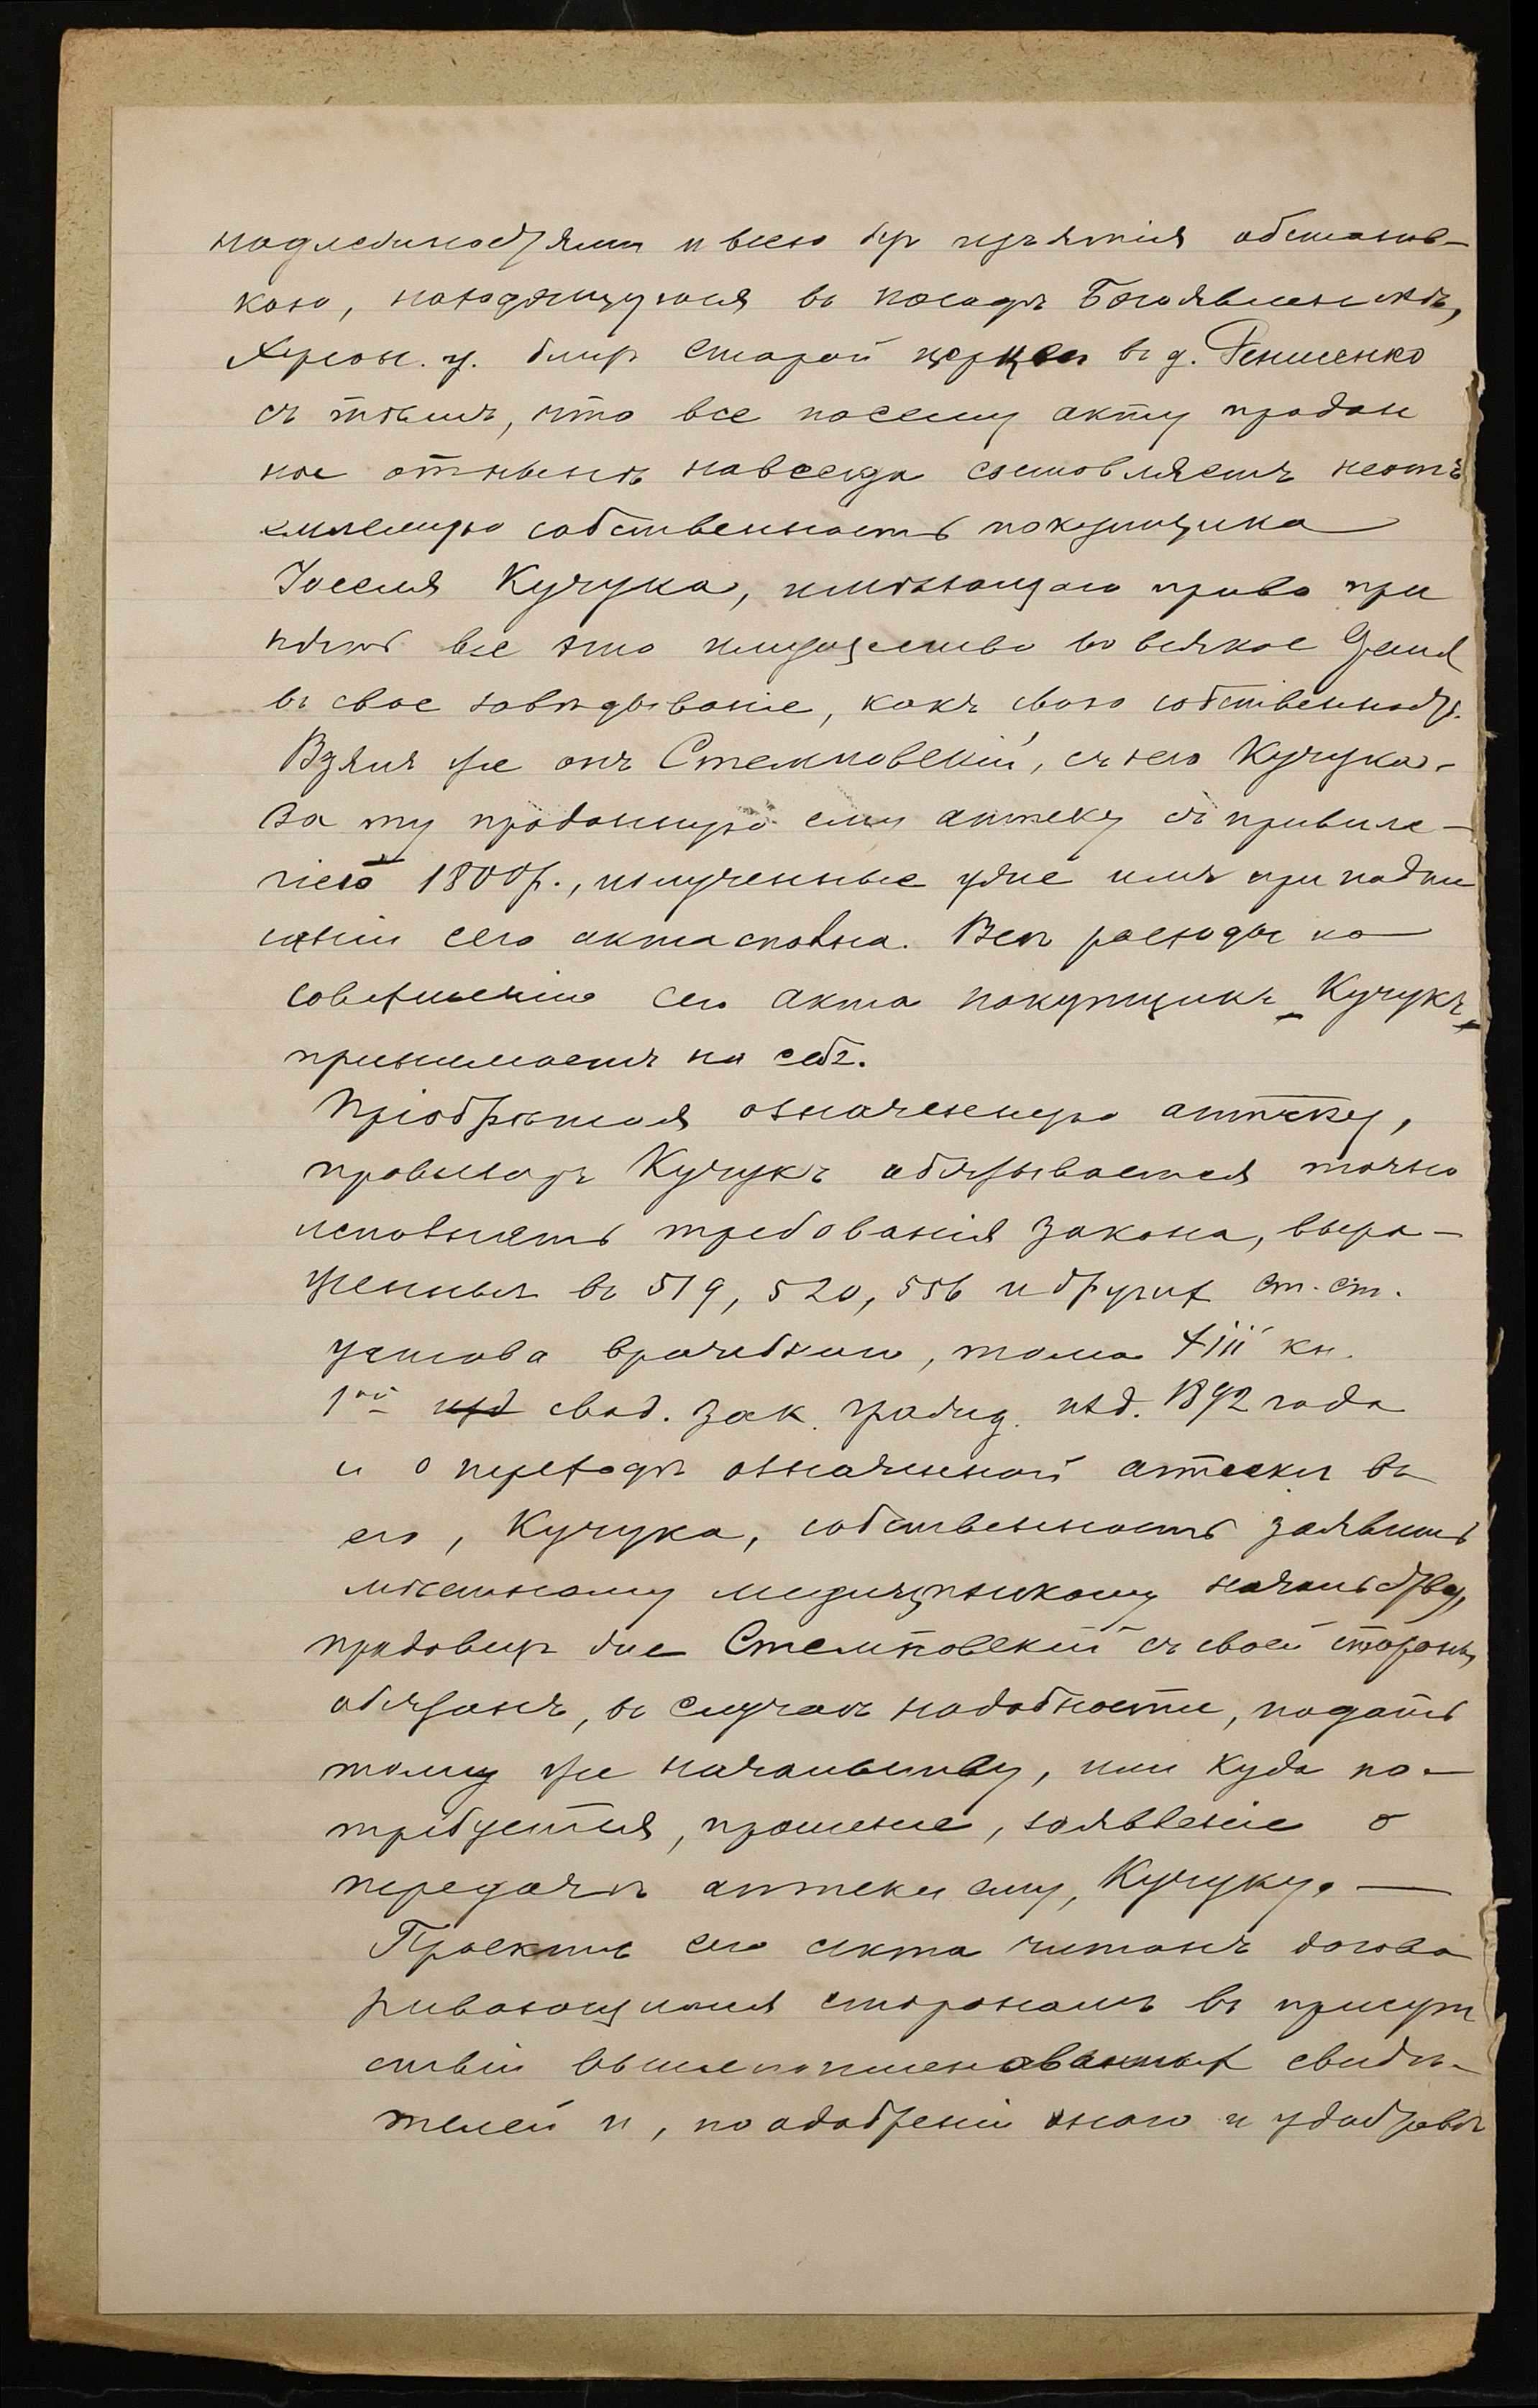 надлежностями и всею без изъятія обстанов-
кою, находящуюся въ посадѣ Богоявленскѣ,
Херсон. у. близъ старой церкви въ д. Реншенко
съ тѣмъ, что все по сему акту продан
ное отнынѣ навсегда составляетъ неотъ
емлемую собственность покупщика
Іоселя Кучука, имѣющаго право при
нять все это имущество во всякое время
въ свое завѣдываніе, какъ свою собственность.
Взялъ же онъ Стемповскій, съ него Кучука-
за ту проданную ему аптеку съ привиле-
гіею 1800 р., полученные уже имъ при подпи
саніи сего акта сполна. Всѣ расходы по
совершенію сего акта покупщикъ Кучукъ
принимаетъ на себѣ.
Пріобрѣтая означенную аптеку,
провизоръ Кучукъ обязывается точно
исполнять требованія закона, выра-
женныя въ 519, 520, 556 и других ст. ст.
устава врачебнаго, тома XIII кн.
1ой изд свод. зак. гражд. изд. 1892 года
и о переходѣ означенной аптеки въ
его, Кучука, собственность заявить
мѣстному медицинскому начальству,
продавецъ же Стемповскій съ своей стороны
обязанъ, въ случаѣ надобности, подать
тому же начальству, или куда по-
требуется, прошеніе, заявленіе о
передачѣ аптеки ему, Кучуку. —
Проектъ сего акта читанъ догова
ривающимся сторонамъ въ присут
ствіи вышепоименованных свидѣ-
телей и, по одобреніи онаго и удостовѣ